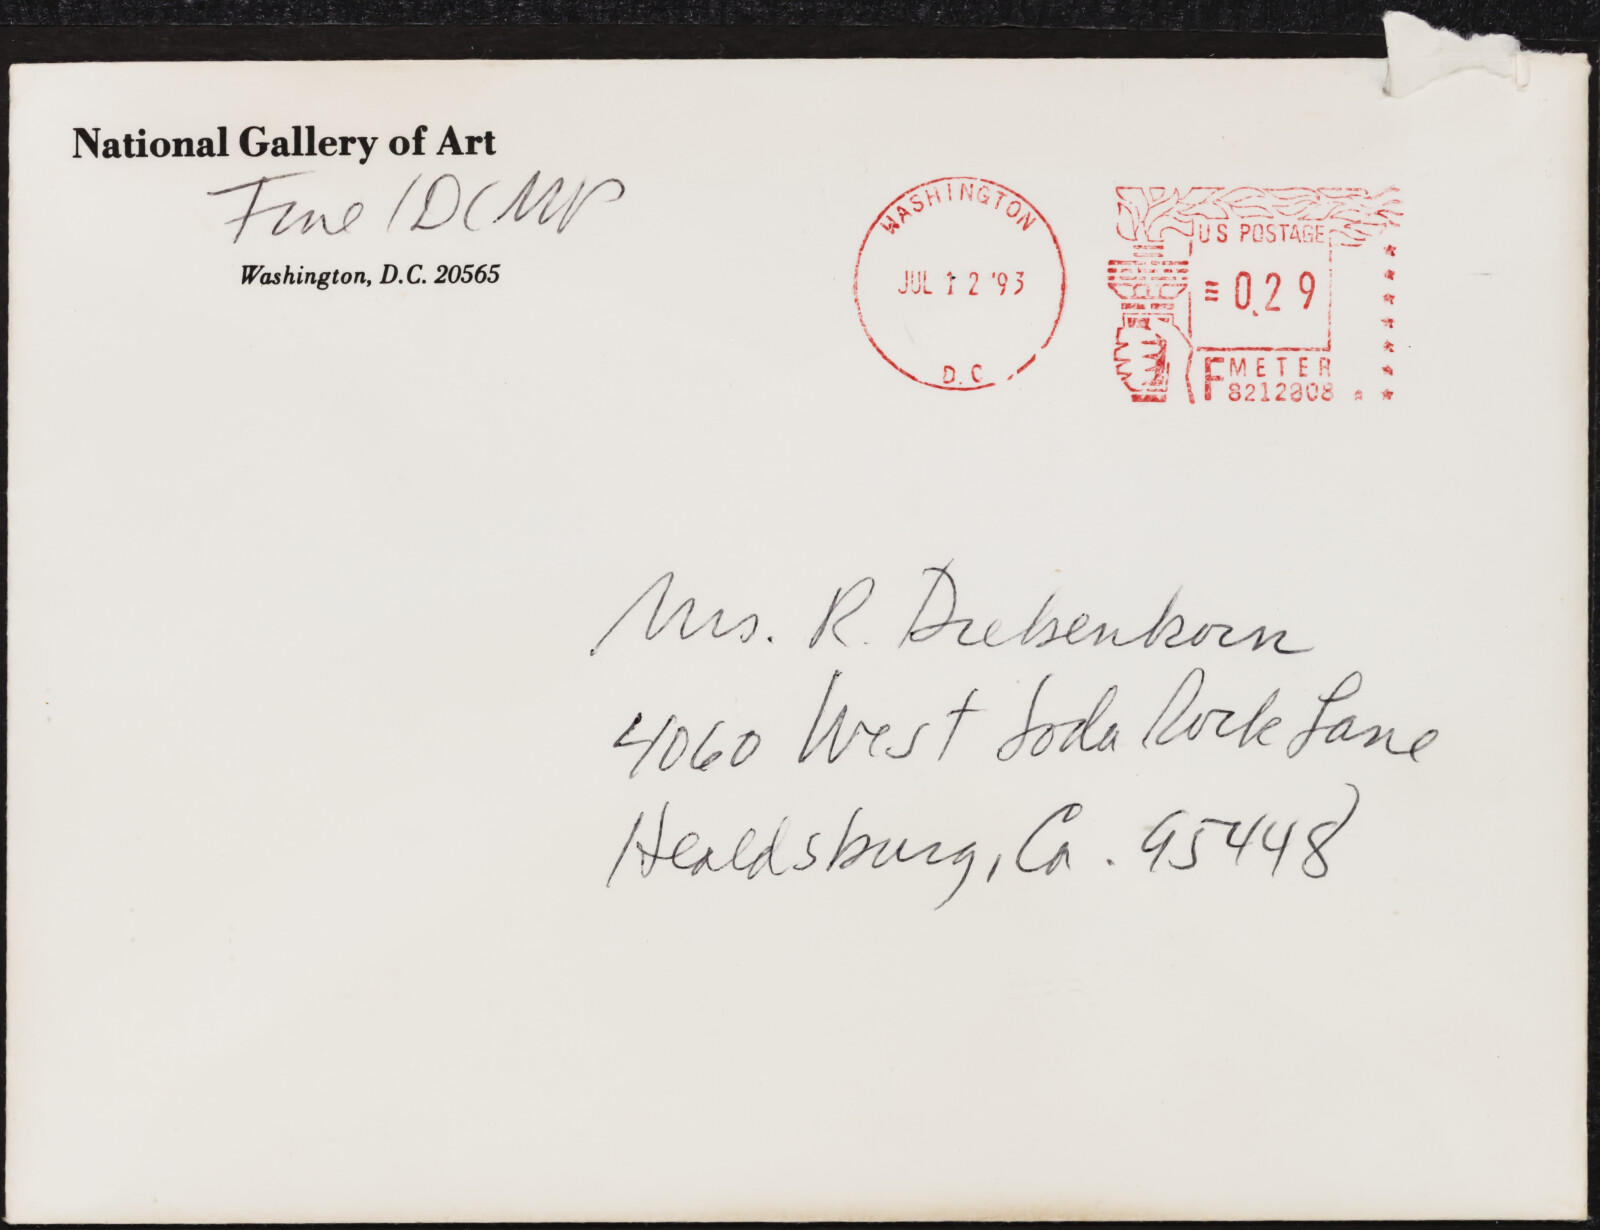 National Gallery of Art
Fine / DCMP
Washington, D.C. 20565
WASHINGTON
JUL 12 '93
D.C.
U S POSTAGE
0.29
F METER
8212808
Mrs. R. Diebenkorn
4060 West Soda Rock Lane
Healdsburg, Ca. 95448